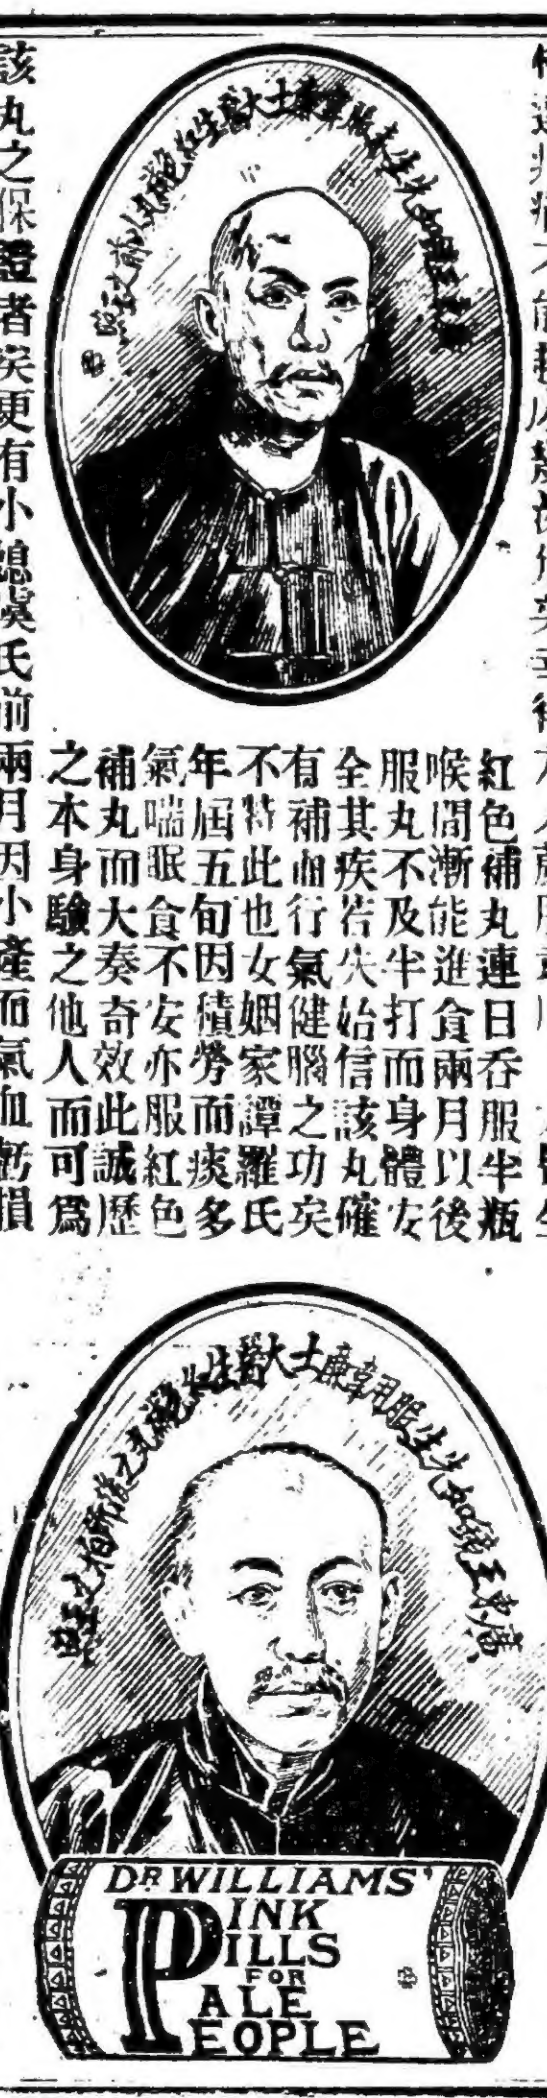 廣東王鏡如先生未服韋廉士大醫生紅色補丸以前之照
紅色補丸連日吞服半瓶
喉間漸能進食兩月以後
服丸不及半打而身體安
全其疾若失始信該丸確
有補血行氣健腦之功矣
不特此也女姻家譚羅氏
年屆五旬因積勞而痰多
氣喘眠食不安亦服紅色
補丸而大奏奇效此誠歷
之本身驗之他人而可為
該丸之保證者矣更有小媳虞氏前兩月因小產而氣血虧損
廣東王鏡如先生服用韋廉士大醫生紅色補丸之後所拍之玉照
DR WILLIAMS'
PINK
PILLS
FOR
PALE
PEOPLE